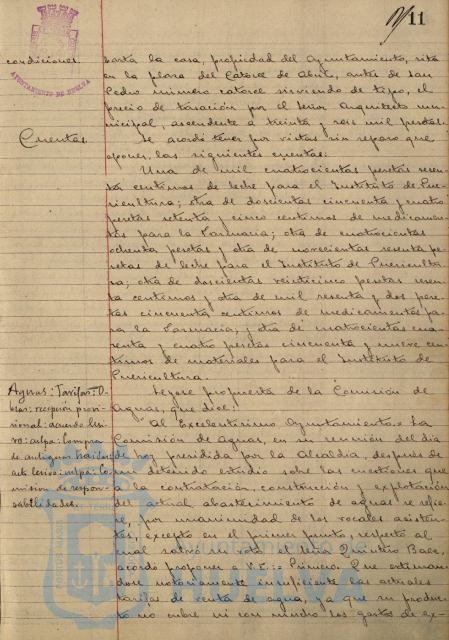 11
condiciones.
basta la casa, propiedad del Ayuntamiento, sita
en la plaza del Catorce de Abril, antes de San
Pedro número catorce sirviendo de tipo, el
precio de tasación por el Señor Arquitecto mu-
nicipal, ascendente a treinta y seis mil pesetas.
Cuentas.
Se acordó tener por vistas sin reparo que
oponer, las siguientes cuentas:
Una de mil cuatrocientas pesetas sesen-
ta centimos de leche para el Instituto de Pue-
ricultura; otra de doscientas cincuenta y cuatro
pesetas setenta y cinco centimos de medicamen-
tos para la Farmacia; otra de cuatrocientas
ochenta pesetas y otra de novecientas sesenta pe-
setas de leche para el Instituto de Puericultu-
ra; otra de doscientas veinticinco pesetas sesen-
ta centimos y otra de mil sesenta y dos pese-
tas cincuenta centimos de medicamentos pa-
ra la Farmacia; y otra de cuatrocientas cua-
renta y cuatro pesetas cincuenta y nueve cen-
timos de materiales para el Instituto de
Puericultura.
Aguas: Tarifas: O-
bras: recepción provi-
sional: acuerdo lesi-
vo: culpa: compra
de antiguas
acto lesivo: culpa: Co-
mision de respon-
sabilidades.
Leyose propuesta de la Comisión de
Aguas, que dice:
Al Excelentísimo Ayuntamiento.= La
Comisión de Aguas, en su reunión del dia
de hoy presidida por la Alcaldía, después de
un detenido estudio sobre las cuestiones que
a la contratación, construcción y explotación
del actual abastecimiento de aguas se refie-
re, por unanimidad de los vocales asisten-
tes, excepto en el primer punto, respecto al
cual salvó su voto el Señor Quintero Baez,
acordó proponer a V.E.:= Primero. Que estiman-
dose notoriamente insuficiente las actuales
tarifas de venta de agua, ya que su produc-
to no cubre ni con mucho los gastos de ex-
AYUNTAMIENTO DE HUELVA
Ayuntamiento
HUELVA